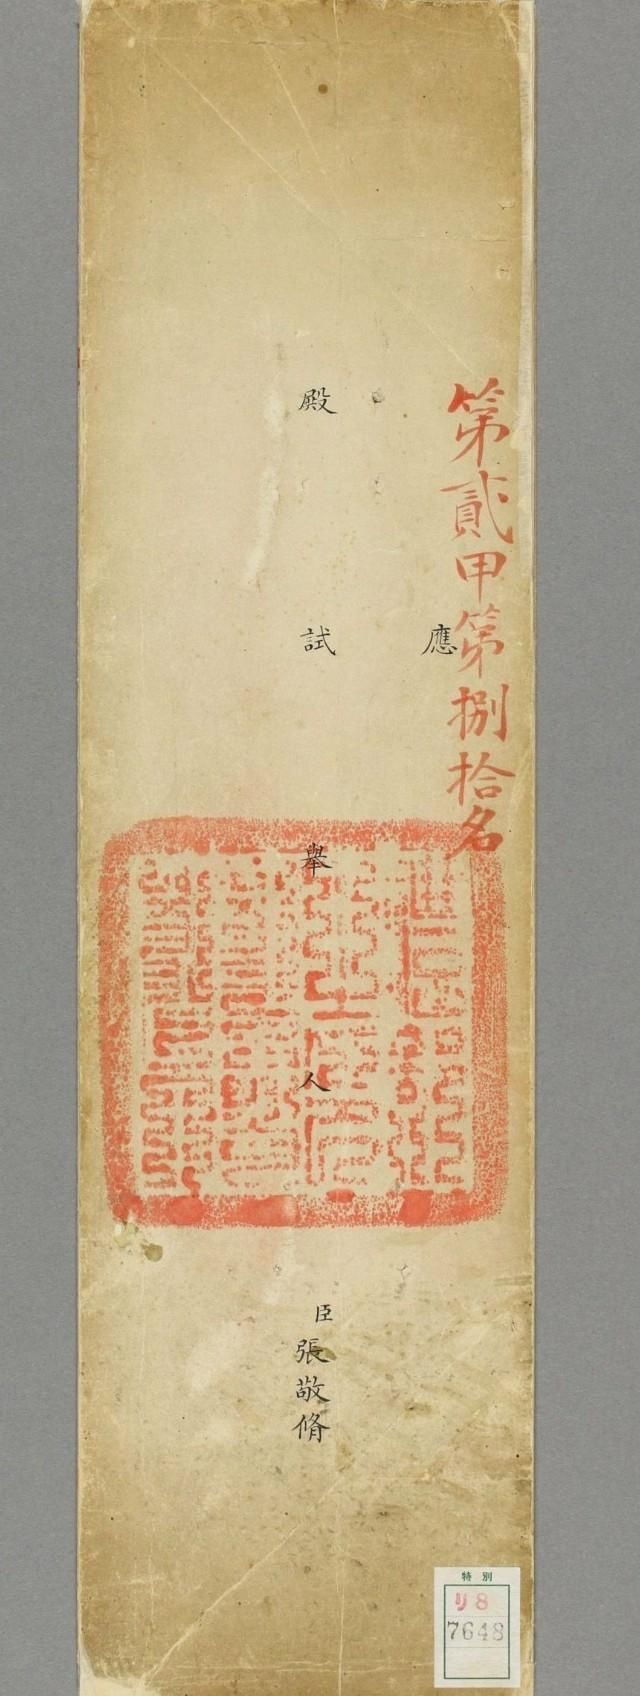 第貳甲第捌拾名
應
殿試舉人臣張敬脩
特別
リ8
7648